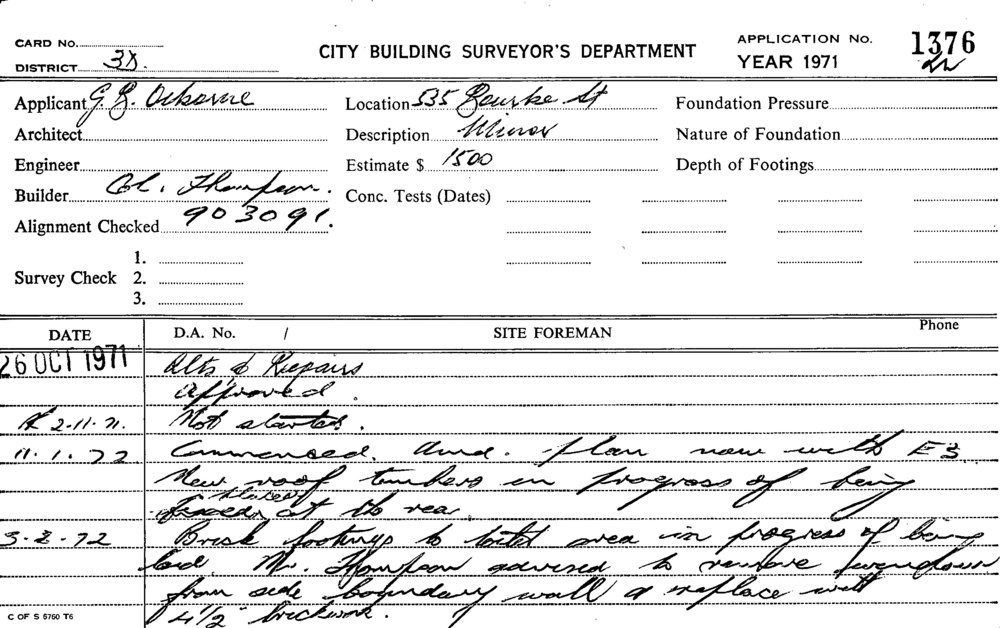 CARD No.
DISTRICT 3X.
CITY BUILDING SURVEYOR'S DEPARTMENT
APPLICATION No. 1376
YEAR 1971
Applicant G. Osborne
Location 535 Bourke St
Foundation Pressure
Architect
Description Minor
Nature of Foundation
Engineer
Estimate $ 1500
Depth of Footings
Builder Col. Thompson.
Conc. Tests (Dates)
Alignment Checked 903091.
1.
Survey Check 2.
3.
DATE D.A. No. / SITE FOREMAN Phone
26 OCT 1971 Alts & Repairs
Approved.
2.11.71. Not started.
11.1.72 Commenced. Amd. plan now with E3
New roof timbers in progress of being
placed at the rear
3.2.72 Brick footings to toilet area in progress of being
laid. Mr. Thompson advised to remove
from side boundary wall & replace with
4½" brickwork.
C OF S 5760 T6